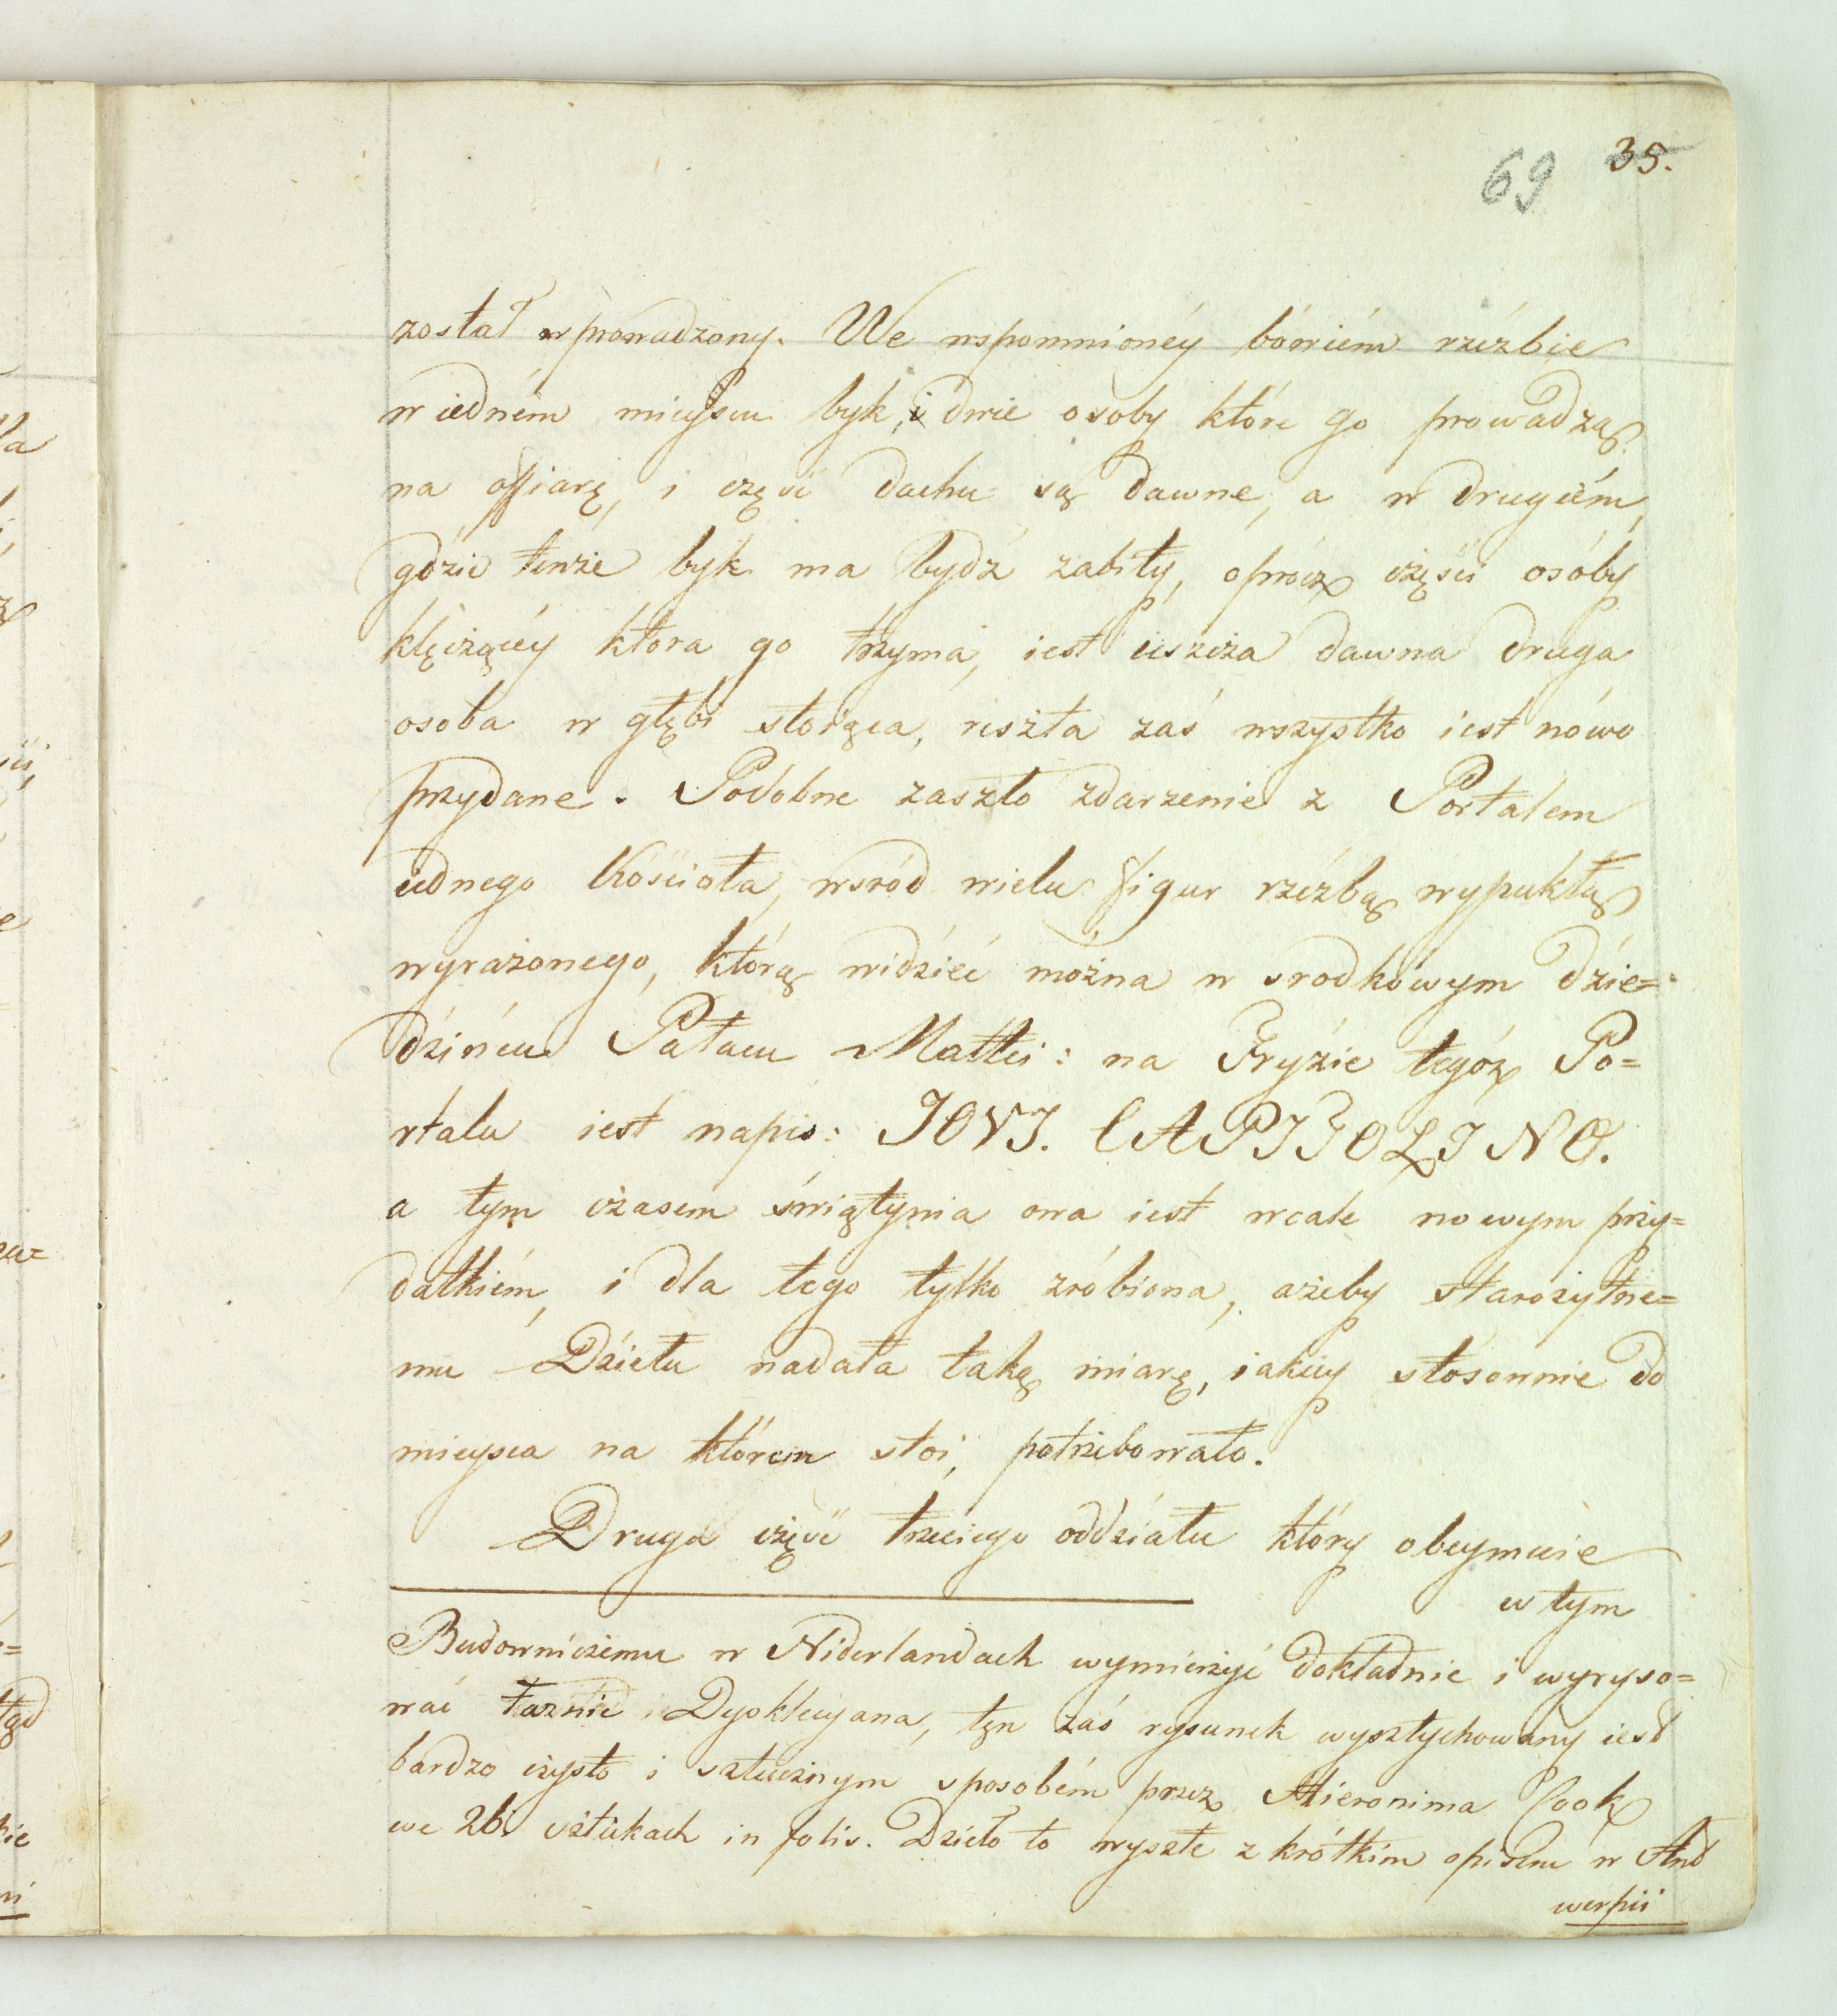 69 35.
został wprowadzony. We wspomnionéy bówiém rzéźbie
w iedném mieyscu byk, i dwie osoby które go prowadzą
na offiarę, i część dachu są dawne, a w drugiém,
gdzie tenże byk ma bydź zabity, oprócz części osóby
klęczącéy która go trzyma, iest ieszcza dawna druga
osoba w głębi stoiąca, reszta zaś wszystko iest nówo
przydane. Podobne zaszło zdarzenie z Portalem
iednego Kościoła, wsród wielu figur rzéźbą wypukłą
wyrażonego, którą widzieć można w srodkówym dzie=
dzińcu Pałacu Mattei: na Fryzie tegóż Po=
rtalu iest napis: JOVJ. CAPJTOLJNO.
a tym czasem świątynia owa iest wcale nowym przy=
datkiém, i dla tego tylko zróbiona, ażeby starożytne=
mu Dziełu nadała taką miarę, iakiey stósownie do
mieysca na którem stoi, potrzebowało.
Druga część trzeciego oddziału który obeymuie
w tym
Budowniczemu w Niderlandach wymierzyć dokładnie i wyryso=
wać Łaznie Dyoklecyana, tęn zaś rysunek wysztychowany iest
bardzo czysto i sztucznym sposobém przez Hieronima Cook
we 26. sztukach in folio. Dzieło to wyszłe z krótkim opisem w And
werpii